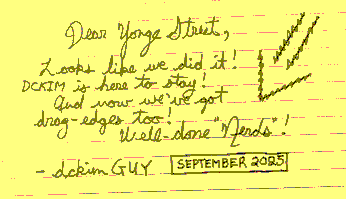 Dear Yonge Street,
Looks like we did it!
DCKIM is here to stay!
And now we've got
drag-edges too!
Well-done "Nerds"!
- dckim GUY
SEPTEMBER 2025